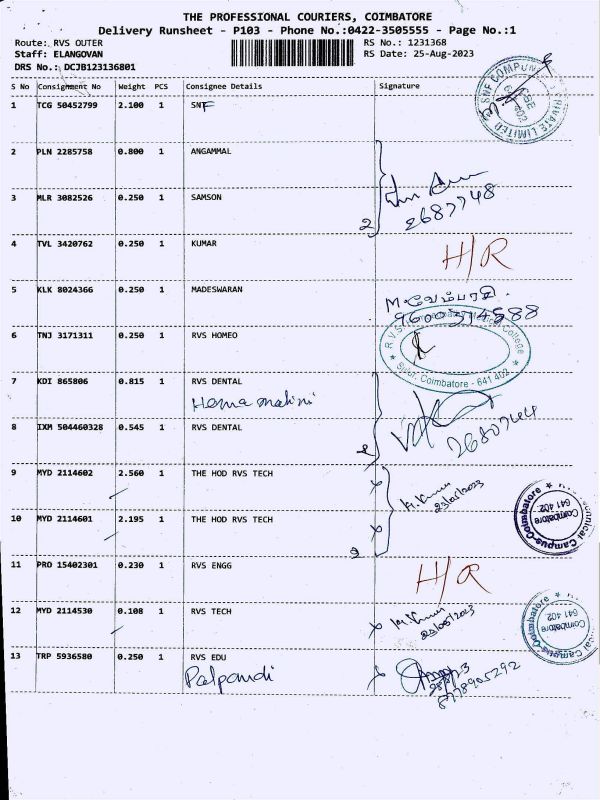 THE PROFESSIONAL COURIERS, COIMBATORE
Delivery Runsheet - P103 - Phone No.:0422-3505555 - Page No.:1
Route: RVS OUTER RS No.: 1231368
Staff: ELANGOVAN RS Date: 25-Aug-2023
DRS No.: DCJB123136801
S No Consignment No Weight PCS Consignee Details Signature
1 TCG 50452799 2.100 1 SNF
2 PLN 2285758 0.800 1 ANGAMMAL
3 MLR 3082526 0.250 1 SAMSON
2687748
2
4 TVL 3420762 0.250 1 KUMAR H/R
5 KLK 8024366 0.250 1 MADESWARAN
6 TNJ 3171311 0.250 1 RVS HOMEO
Sulur, Coimbatore - 641 402
7 KDI 865806 0.815 1 RVS DENTAL
Hema malini
8 IXM 504460328 0.545 1 RVS DENTAL
9 MYD 2114602 2.560 1 THE HOD RVS TECH
10 MYD 2114601 2.195 1 THE HOD RVS TECH
Coimbatore
641 402
11 PRO 15402301 0.230 1 RVS ENGG H/R
12 MYD 2114530 0.108 1 RVS TECH
Coimbatore
641 402
13 TRP 5936580 0.250 1 RVS EDU
Palpandi
8778905292